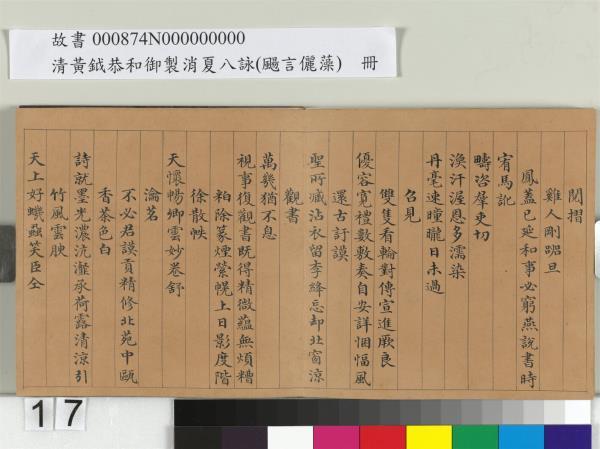 故書 000874N000000000
清黃鉞恭和御製消夏八詠(颺言儷藻) 冊
閱摺
雞人剛唱旦
鳳蓋已延和事必窮燕說書時
宥馬訛
疇咨羣吏切
渙汗渥恩多濡染
丹毫速曈曨日未過
召見
雙隻看輪對傳宣進厥良
優容寬禮數敷奏自安詳悃愊風
還古訏謨
聖所臧沾衣留李絳忘却北窗涼
觀書
萬幾猶不息
視事復觀書既得精微蘊無煩糟
粕除篆煙縈幌上日影度階
徐散帙
天懷暢卿雲妙卷舒
瀹茗
不必君謨貢精修北苑中甌
香茶色白
詩就墨光濃沆瀣承荷露清涼引
竹風雲腴
天上好蠍蝨笑臣仝
17